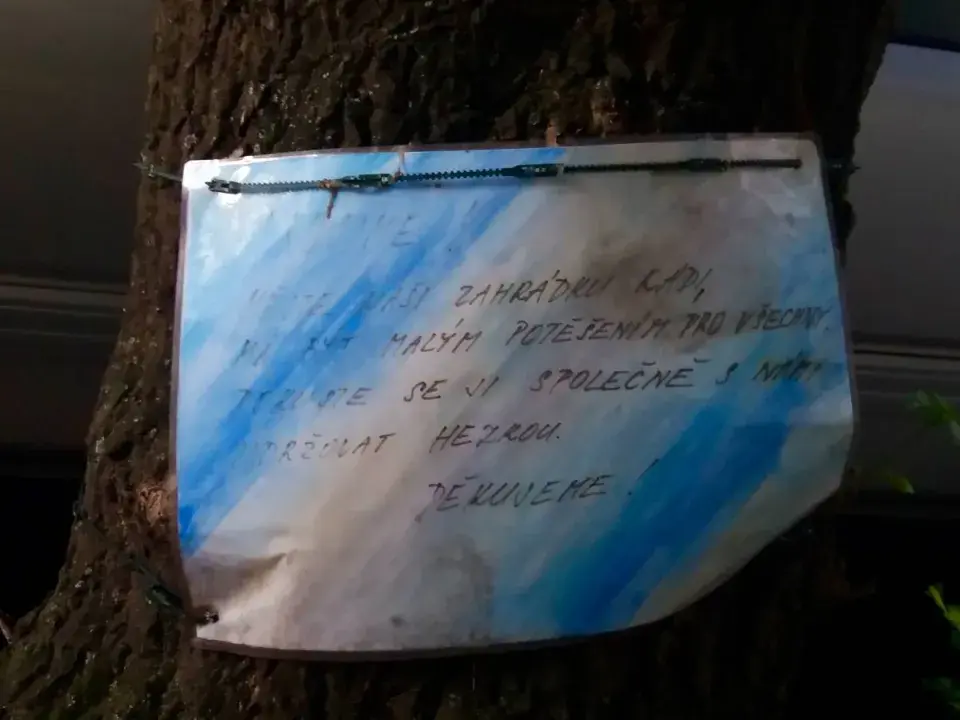 MÁTE NAŠI ZAHRÁDKU RÁDI,
MÁ BÝT MALÝM POTĚŠENÍM PRO VŠECHNY.
SE JI SPOLEČNĚ S NÁMI
UDRŽOVAT HEZKOU.
DĚKUJEME!